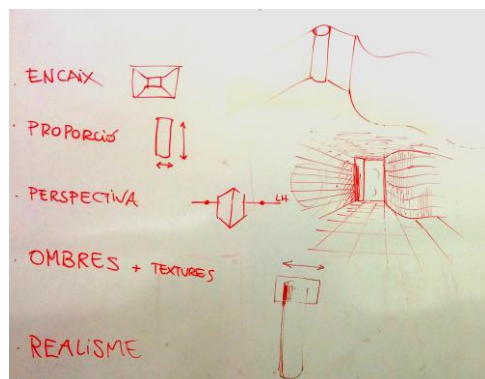 · ENCAIX
· PROPORCIÓ
· PERSPECTIVA
LH
· OMBRES + TEXTURES
· REALISME